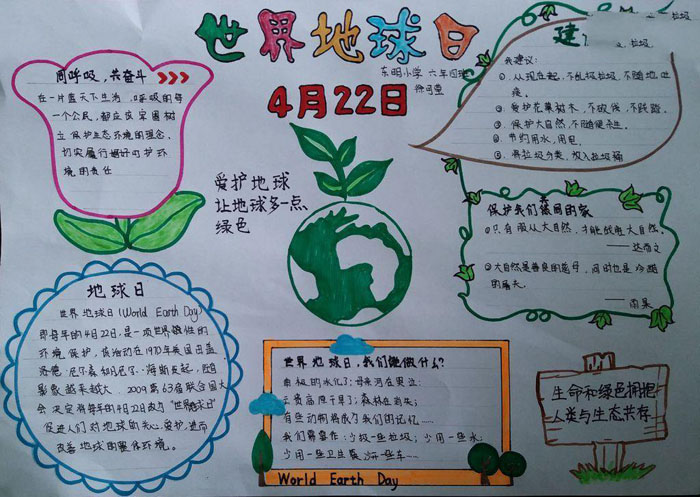 世界地球日
4月22日
东明小学 六年四班
同呼吸,共奋斗
在一片蓝天下生活,呼吸的每
一个公民,都应该牢固树
立保护生态环境的理念,
切实履行好保护环
境的责任
爱护地球
让地球多一点
绿色
地球日
世界地球日(World Earth Day)
即每年的4月22日,是一项世界性的
环境保护,该活动在1970年美国由盖
洛德·尼尔森和尼尔·海斯发起,随后
影响越来越大。2009第63届联合国大
会决定将每年的4月22日改为“世界地球日”
促进人们对地球的关心、爱护,进而
改善地球的整体环境。
建
我建议:
①、从现在起,不乱扔垃圾,不随地吐
痰。
②、爱护花草树木,不破坏,不践踏。
③、保护大自然,不随便杀生。
④、节约用水,用电。
⑤、将垃圾分类,放入垃圾桶
保护我们共同的家
①只有服从大自然,才能战胜大自然。
——达尔文
②大自然是善良的慈母,同时也是冷酷
的屠夫。
——雨果
世界地球日,我们能做什么?
南极的冰化了;母亲河在哭泣;
云贵高原干旱了;森林在消失;
有些动物将成了我们的记忆……
我们需要作:少扔一些垃圾;少用一些水;
少用一些卫生袋、少开一些车……
World Earth Day
生命和绿色拥抱
人类与生态共存